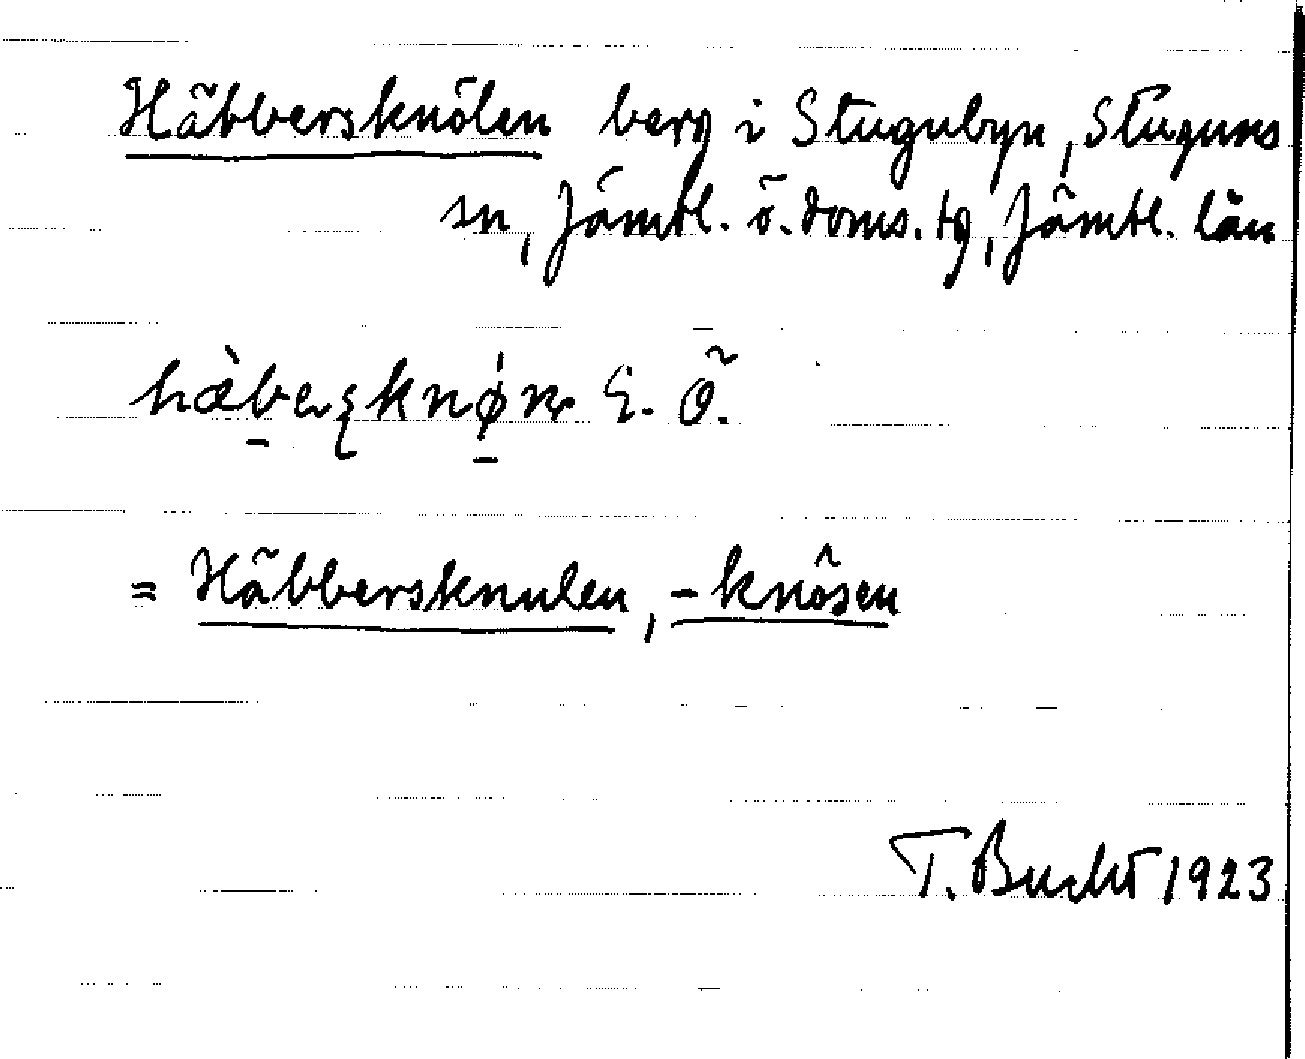 Häbbersknölen berg i Stugubyn, Stuguns
sn, Jämtl. ö. doms. tg, Jämtl. län
E. Ö.
= Häbbersknulen, -knösen
T. Bucht 1923